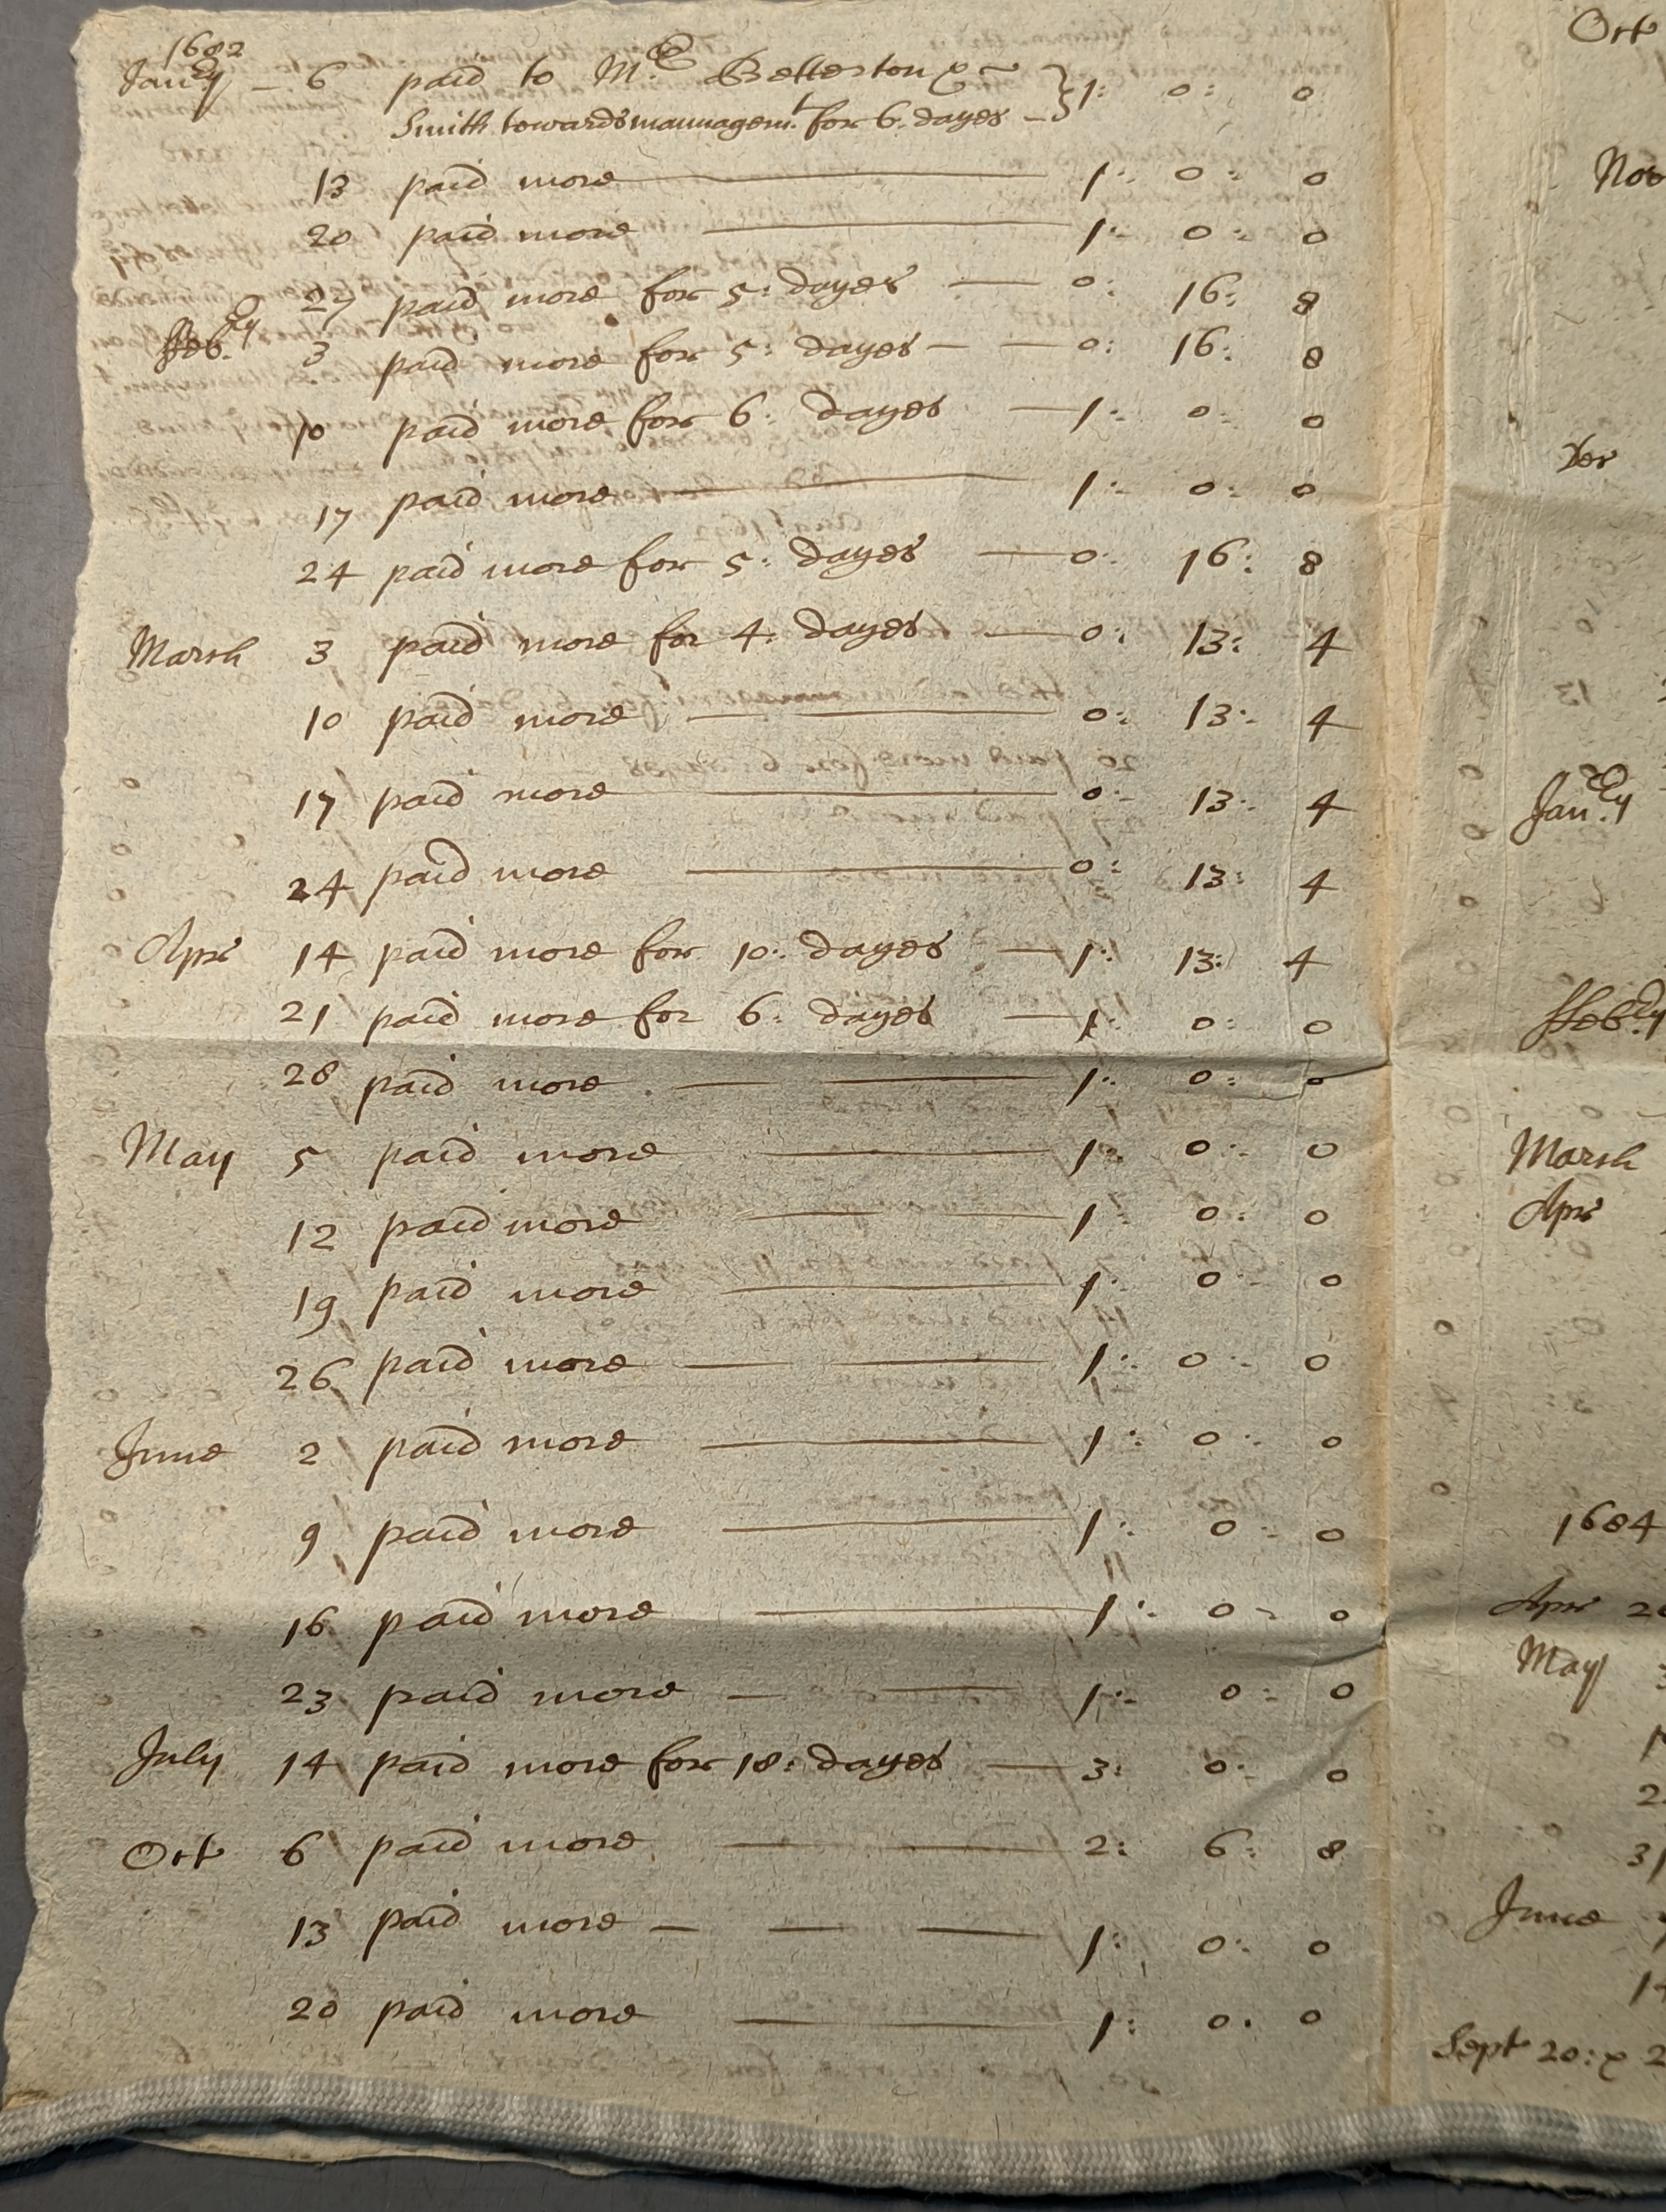 1682
Jan:ry — 6 paid to Mr Betterton &
Smith towards mannagemt. for 6. dayes — } 1: 0: 0
13 paid more 1: 0: 0
20 paid more 1: 0: 0
27 paid more for 5: dayes — 0: 16: 8
ffeb:ry 3 paid more for 5: dayes — — 0: 16: 8
10 paid more for 6: dayes — 1: 0: 0
17 paid more 1: 0: 0
24 paid more for 5: dayes — 0: 16: 8
Marsh 3 paid more for 4: dayes — 0: 13: 4
10 paid more — 0: 13: 4
17 paid more 0: 13: 4
24 paid more 0: 13: 4
Apr 14 paid more for 10: dayes — 1: 13: 4
21 paid more for 6: dayes — 1: 0: 0
28 paid more — 1: 0: 0
May 5 paid more 1: 0: 0
12 paid more — 1: 0: 0
19 paid more 1: 0: 0
26 paid more — 1: 0: 0
June 2 paid more 1: 0: 0
9 paid more 1: 0: 0
16 paid more 1: 0: 0
23 paid more — 1: 0: 0
July 14 paid more for 18: dayes — 3: 0: 0
Oct 6 paid more — 2: 6: 8
13 paid more — — — 1: 0: 0
20 paid more 1: 0. 0
Oct
Nov
Xer
Jan:ry
ffeb:ry
Marsh
Apr
1684
Apr
May
June
Sept 20: &